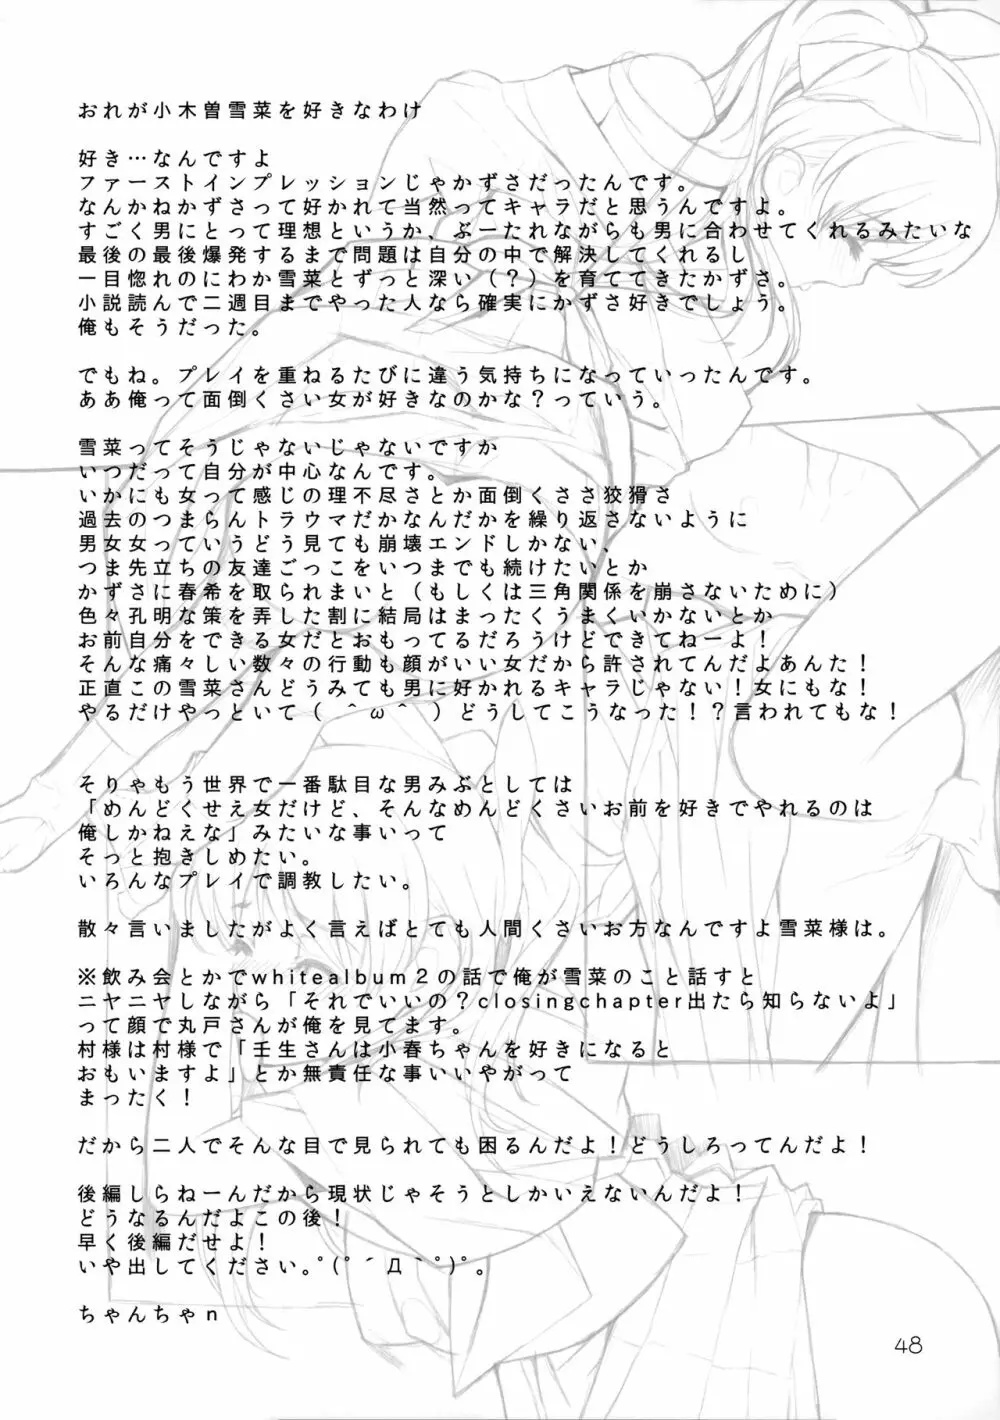 おれが小木曽雪菜を好きなわけ
好き…なんですよ
ファーストインプレッションじゃかずさだったんです。
なんかねかずさって好かれて当然ってキャラだと思うんですよ。
すごく男にとって理想というか、ぶーたれながらも男に合わせてくれるみたいな
最後の最後爆発するまで問題は自分の中で解決してくれるし
一目惚れのにわか雪菜とずっと深い（？）を育ててきたかずさ。
小説読んで二週目までやった人なら確実にかずさ好きでしょう。
俺もそうだった。
でもね。プレイを重ねるたびに違う気持ちになっていったんです。
ああ俺って面倒くさい女が好きなのかな？っていう。
雪菜ってそうじゃないじゃないですか
いつだって自分が中心なんです。
いかにも女って感じの理不尽さとか面倒くささ狡猾さ
過去のつまらんトラウマだかなんだかを繰り返さないように
男女女っていうどう見ても崩壊エンドしかない、
つま先立ちの友達ごっこをいつまでも続けたいとか
かずさに春希を取られまいと（もしくは三角関係を崩さないために）
色々孔明な策を弄した割に結局はまったくうまくいかないとか
お前自分をできる女だとおもってるだろうけどできてねーよ！
そんな痛々しい数々の行動も顔がいい女だから許されてんだよあんた！
正直この雪菜さんどうみても男に好かれるキャラじゃない！女にもな！
やるだけやっといて（ ＾ω＾ ）どうしてこうなった！？言われてもな！
そりゃもう世界で一番駄目な男みぶとしては
「めんどくせえ女だけど、そんなめんどくさいお前を好きでやれるのは
俺しかねえな」みたいな事いって
そっと抱きしめたい。
いろんなプレイで調教したい。
散々言いましたがよく言えばとても人間くさいお方なんですよ雪菜様は。
※飲み会とかでwhitealbum２の話で俺が雪菜のこと話すと
ニヤニヤしながら「それでいいの？closingchapter出たら知らないよ」
って顔で丸戸さんが俺を見てます。
村様は村様で「壬生さんは小春ちゃんを好きになると
おもいますよ」とか無責任な事いいやがって
まったく！
だから二人でそんな目で見られても困るんだよ！どうしろってんだよ！
後編しらねーんだから現状じゃそうとしかいえないんだよ！
どうなるんだよこの後！
早く後編だせよ！
いや出してください。ﾟ(ﾟ´Д｀ﾟ)ﾟ。
ちゃんちゃｎ
48